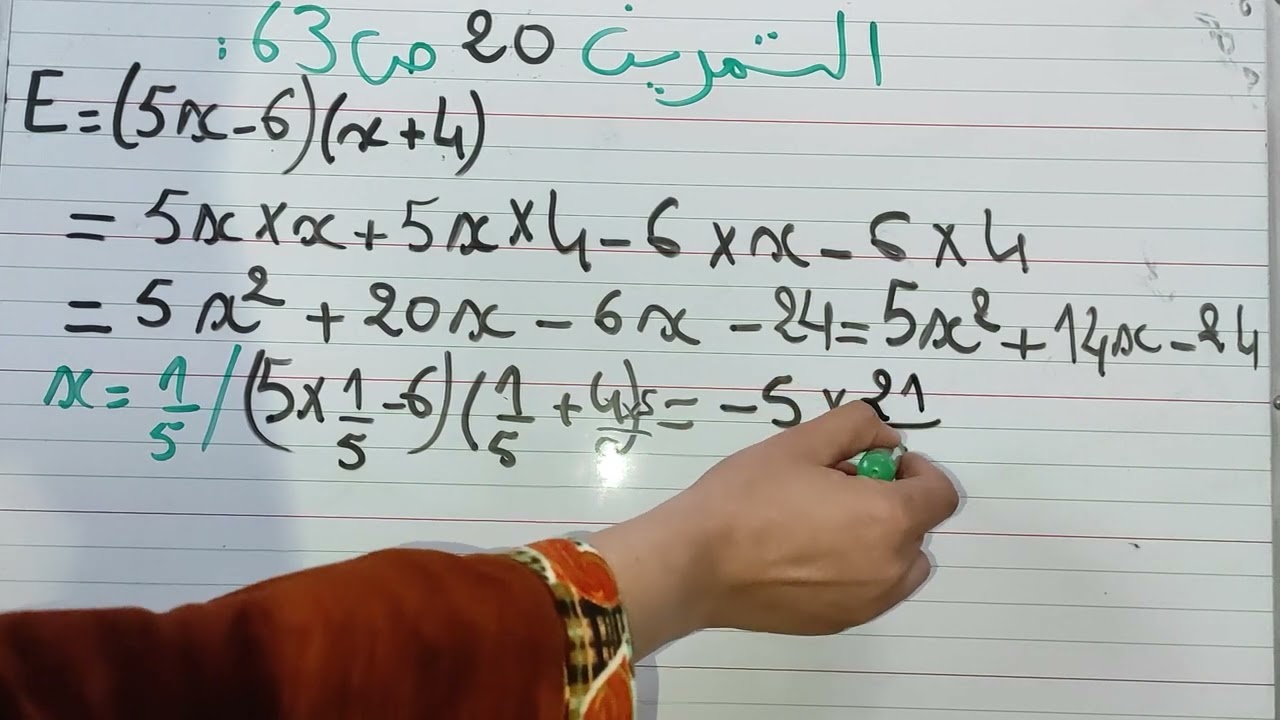 التمرين 20 ص 63 :
E = (5x - 6)(x + 4)
= 5x × x + 5x × 4 - 6 × x - 6 × 4
= 5x² + 20x - 6x - 24 = 5x² + 14x - 24
x = 1/5 / (5 × 1/5 - 6)(1/5 + 4×5/5) = -5 × 21